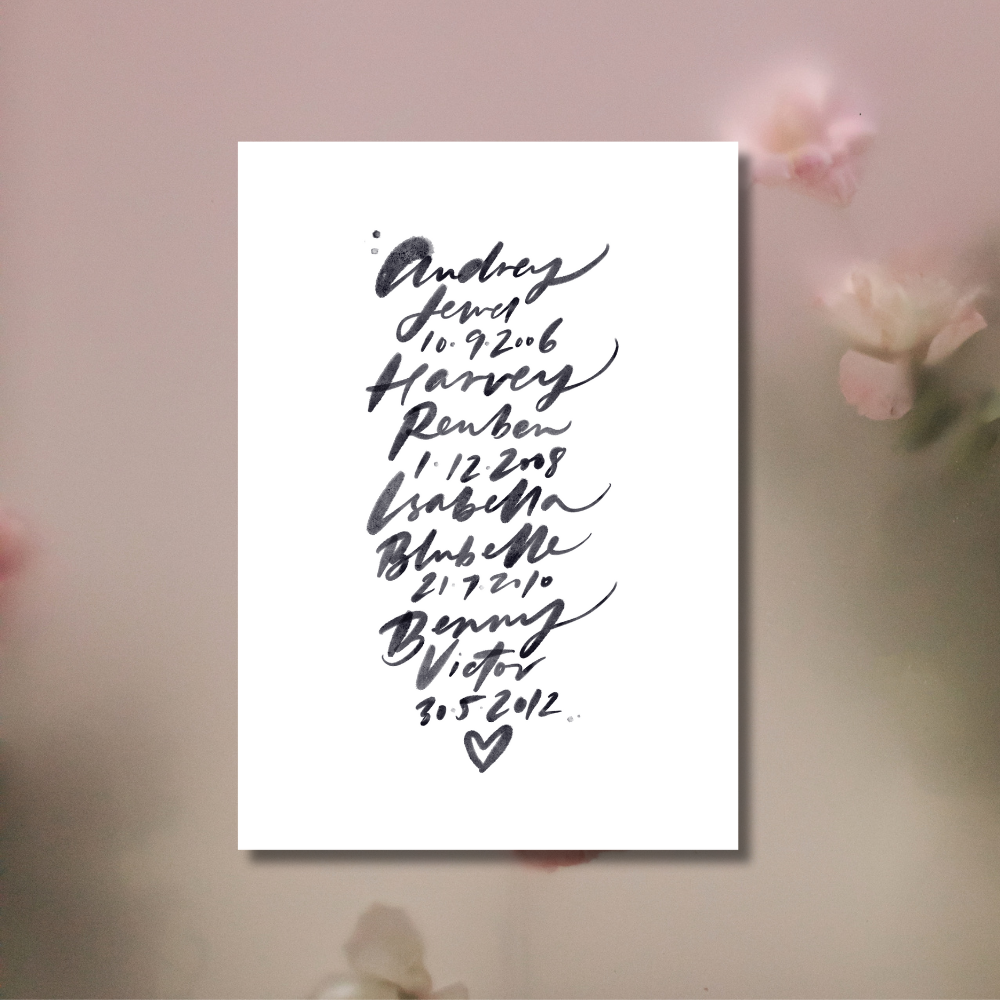 Audrey
Jewel
10.9.2006
Harvey
Reuben
1.12.2008
Isabella
Blubelle
21.7.2010
Benny
Victor
30.5.2012